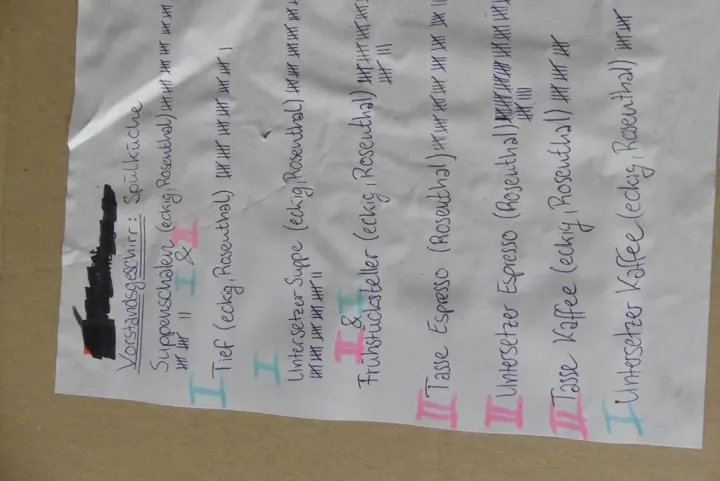 Vorstandsgeschirr: Spülküche
Suppenschalen (eckig, Rosenthal) 卌 卌 卌 卌
卌 卌 II I & II
I Tief (eckig, Rosenthal) 卌 卌 卌 卌 卌 卌 I
I
Untersetzer Suppe (eckig, Rosenthal) 卌 卌 卌 卌
卌 卌 卌 卌 卌 II
II & I
Frühstücksteller (eckig, Rosenthal) 卌 卌 卌 卌
卌 卌 III
II Tasse Espresso (Rosenthal) 卌 卌 卌 卌 卌 卌
II Untersetzer Espresso (Rosenthal)
卌 III
II Tasse Kaffee (eckig, Rosenthal) 卌 卌 卌 卌
I Untersetzer Kaffee (eckig, Rosenthal) 卌 卌